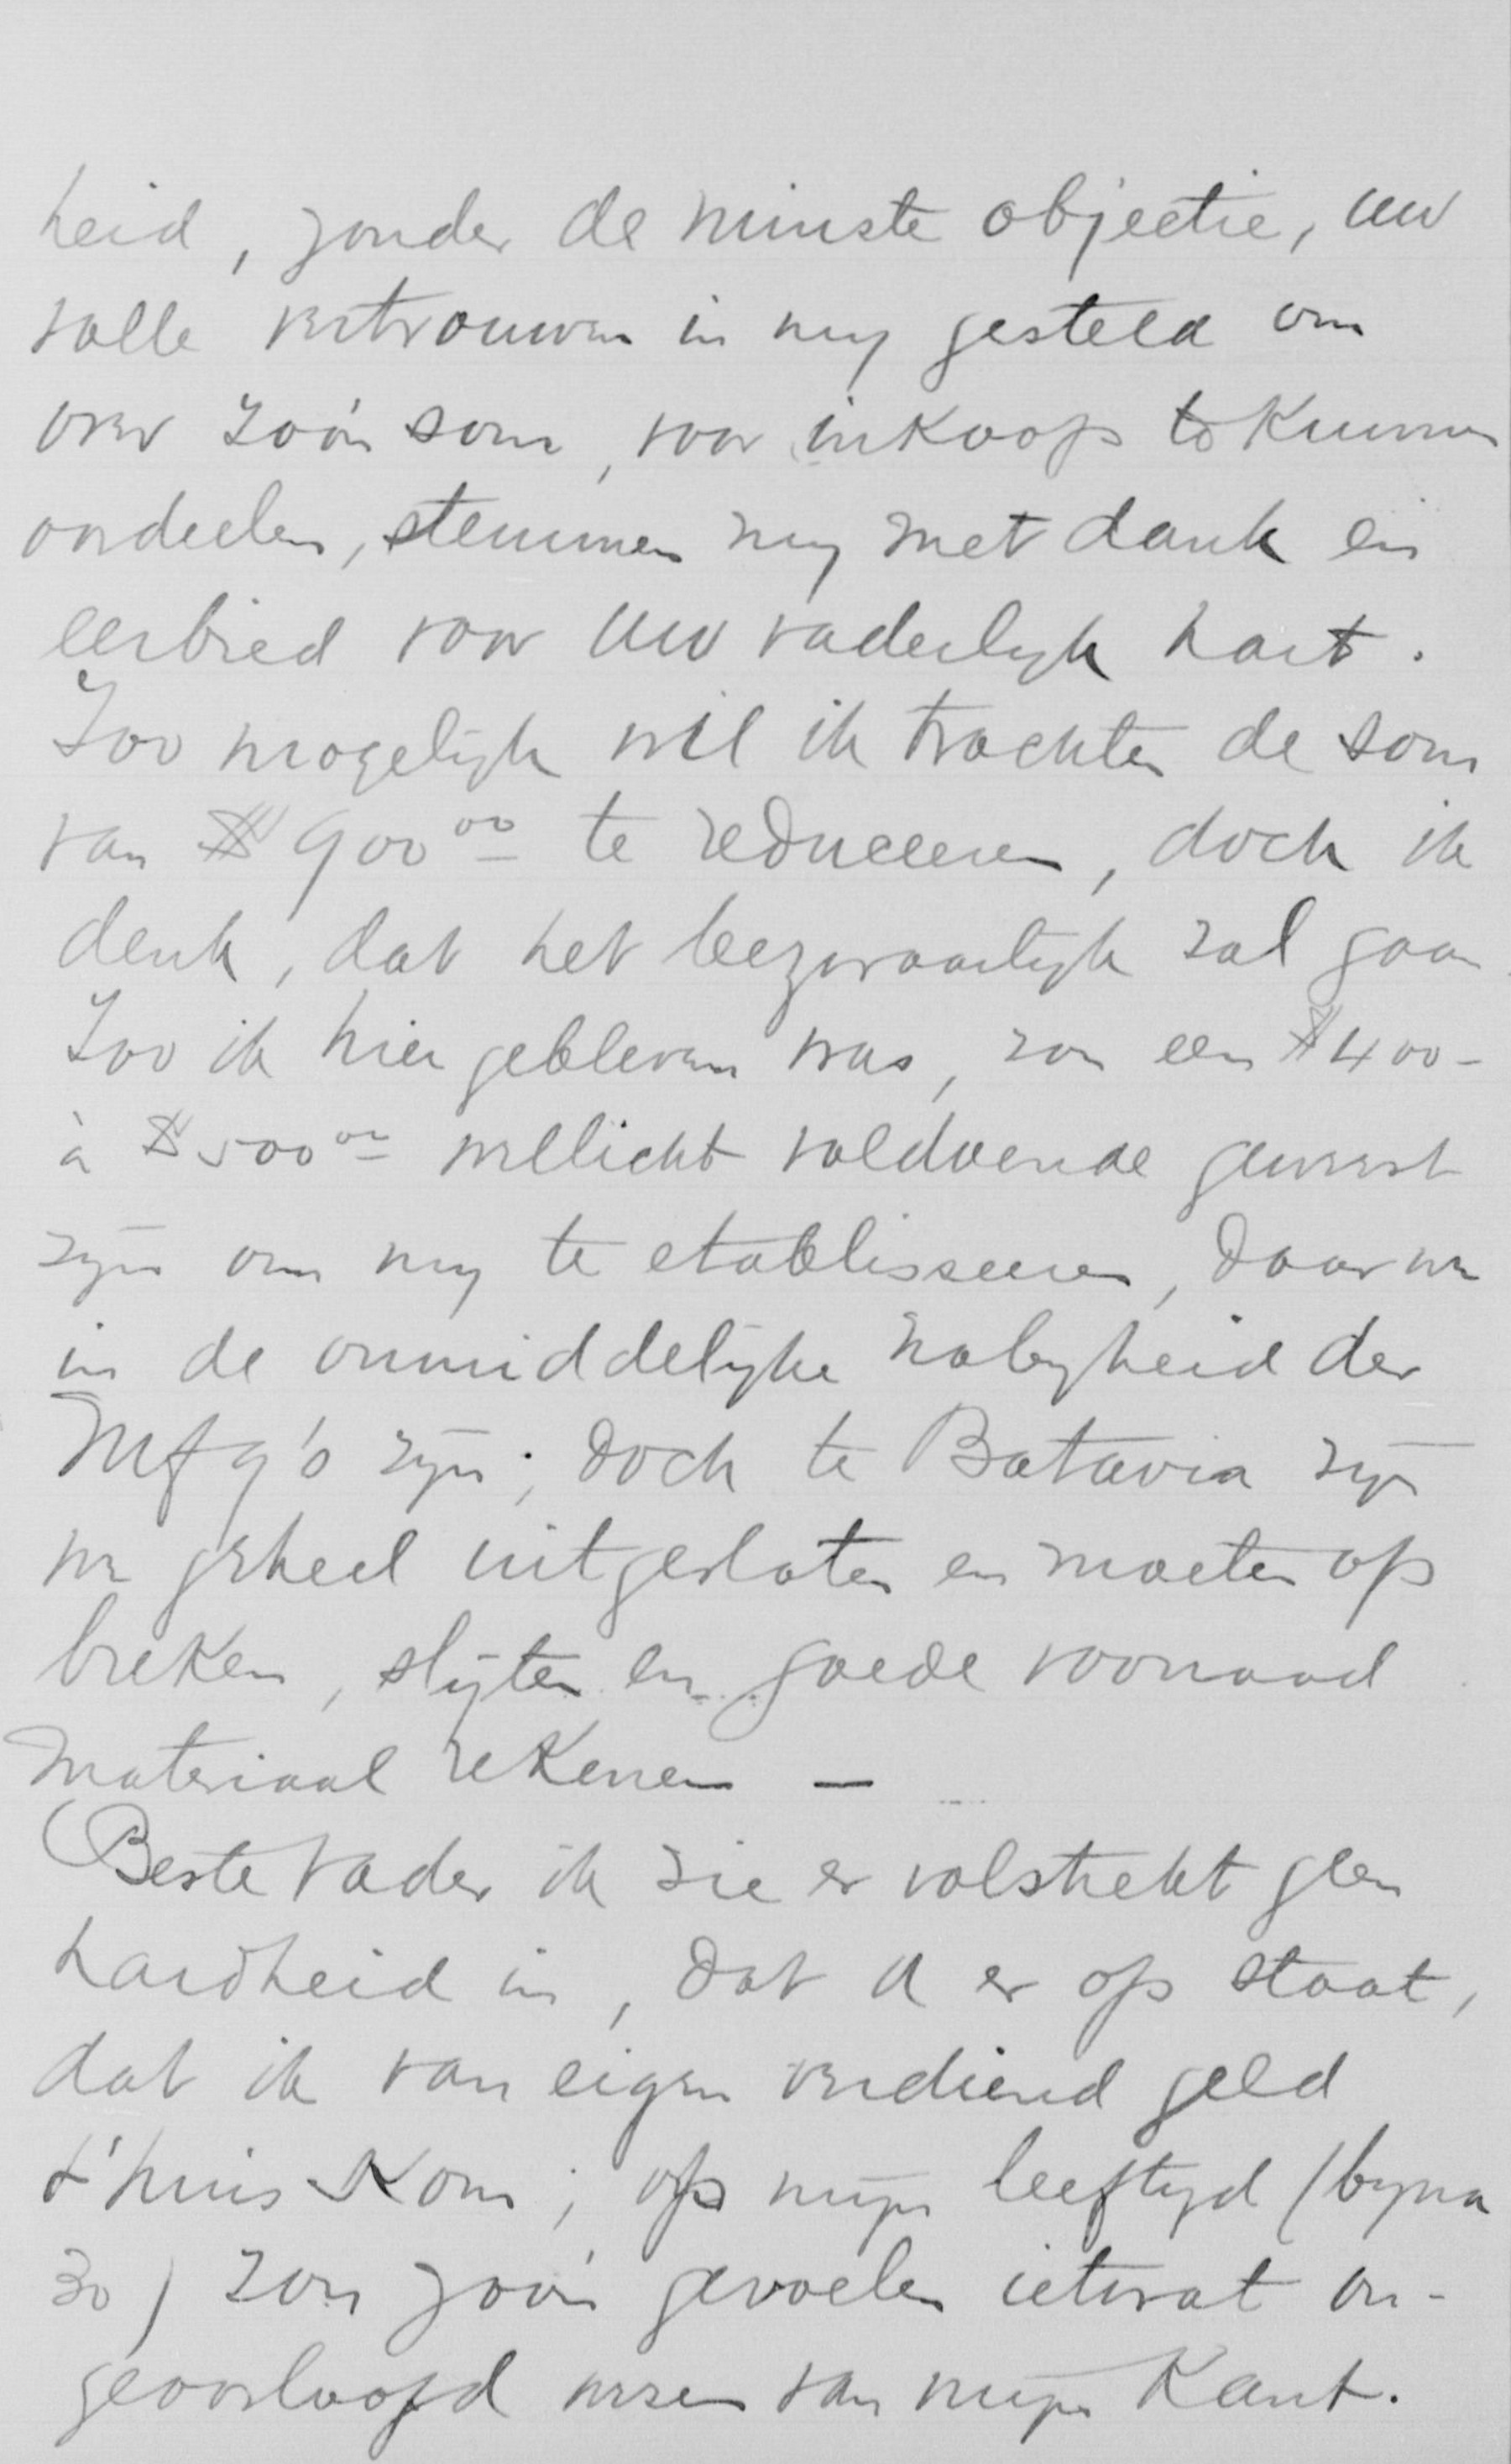 heid, zonder de minste objectie, uw
volle vertrouwen in my gesteld om
over zoo'n som, voor inkoop te kunnen
oordeelen, stemmen my met dank en
eerbied voor Uw vaderlyk hart.
Zoo mogelijk wil ik trachten de som
van $ 900 00 te reduceeren, doch ik
denk, dat het bezwaarlyk zal gaan
Zoo ik hier gebleven was, zou een $ 400-
à $ 500 00 wellicht voldoende geweest
zyn om my te etablisseeren, daar we
in de onmiddelijke nabyheid der
Mfg's zyn; doch te Batavia zyn
we geheel uitgesloten en moeten op
breken, slyten en goede voorraad
materiaal rekenen —
Beste Vader ik zie er volstrekt geen
hardheid in, dat U er op staat,
dat ik van eigen verdiend geld
t'huis kom; op mijn leeftyd (byna
30) zou zoo'n gevoelen ietwat on-
geoorloofd wezen van mijn kant.